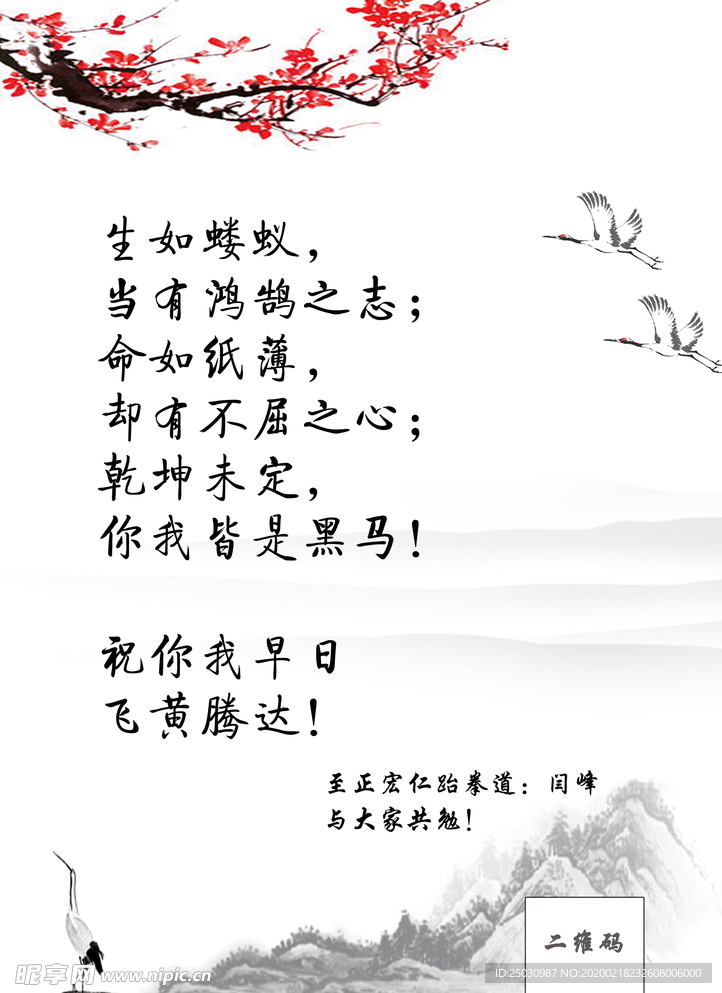 生如蝼蚁，
当有鸿鹄之志；
命如纸薄，
却有不屈之心；
乾坤未定，
你我皆是黑马！
祝你我早日
飞黄腾达！
至正宏仁跆拳道：闫峰
与大家共勉！
二维码
昵享网 www.nipic.cn
ID:25030987 NO:20200218232608006000